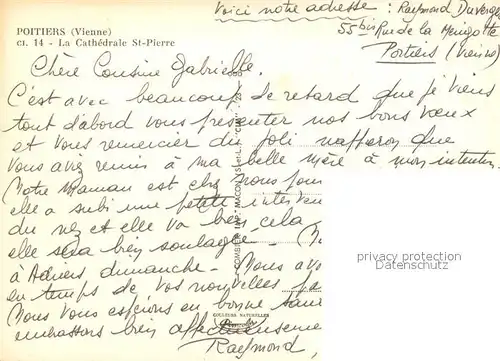 Voici notre adresse : Raymond Duverg
POITIERS (Vienne)
55 bis Rue de la
CI. 14 - La Cathédrale St-Pierre
Poitiers (Vienne)
Chère Cousine Gabrielle.
C'est avec beaucoup de retard que je viens
tout d'abord vous présenter nos bons vœux
et vous remercier du joli napperon que
vous avez remis à ma belle mère à mon intention.
Notre Maman est chez nous
elle a subi une petite interven
du nez et elle va bien, cela
elle sera bien soulagée.
à Adriers dimanche. Nous avo
en temps de vos nouvelles pa
Nous vous espérons en bonne san
embrassons bien affectueuseme
Raymond,
COMBIER IMP. MACON
COULEURS NATURELLES
privacy protection
Datenschutz